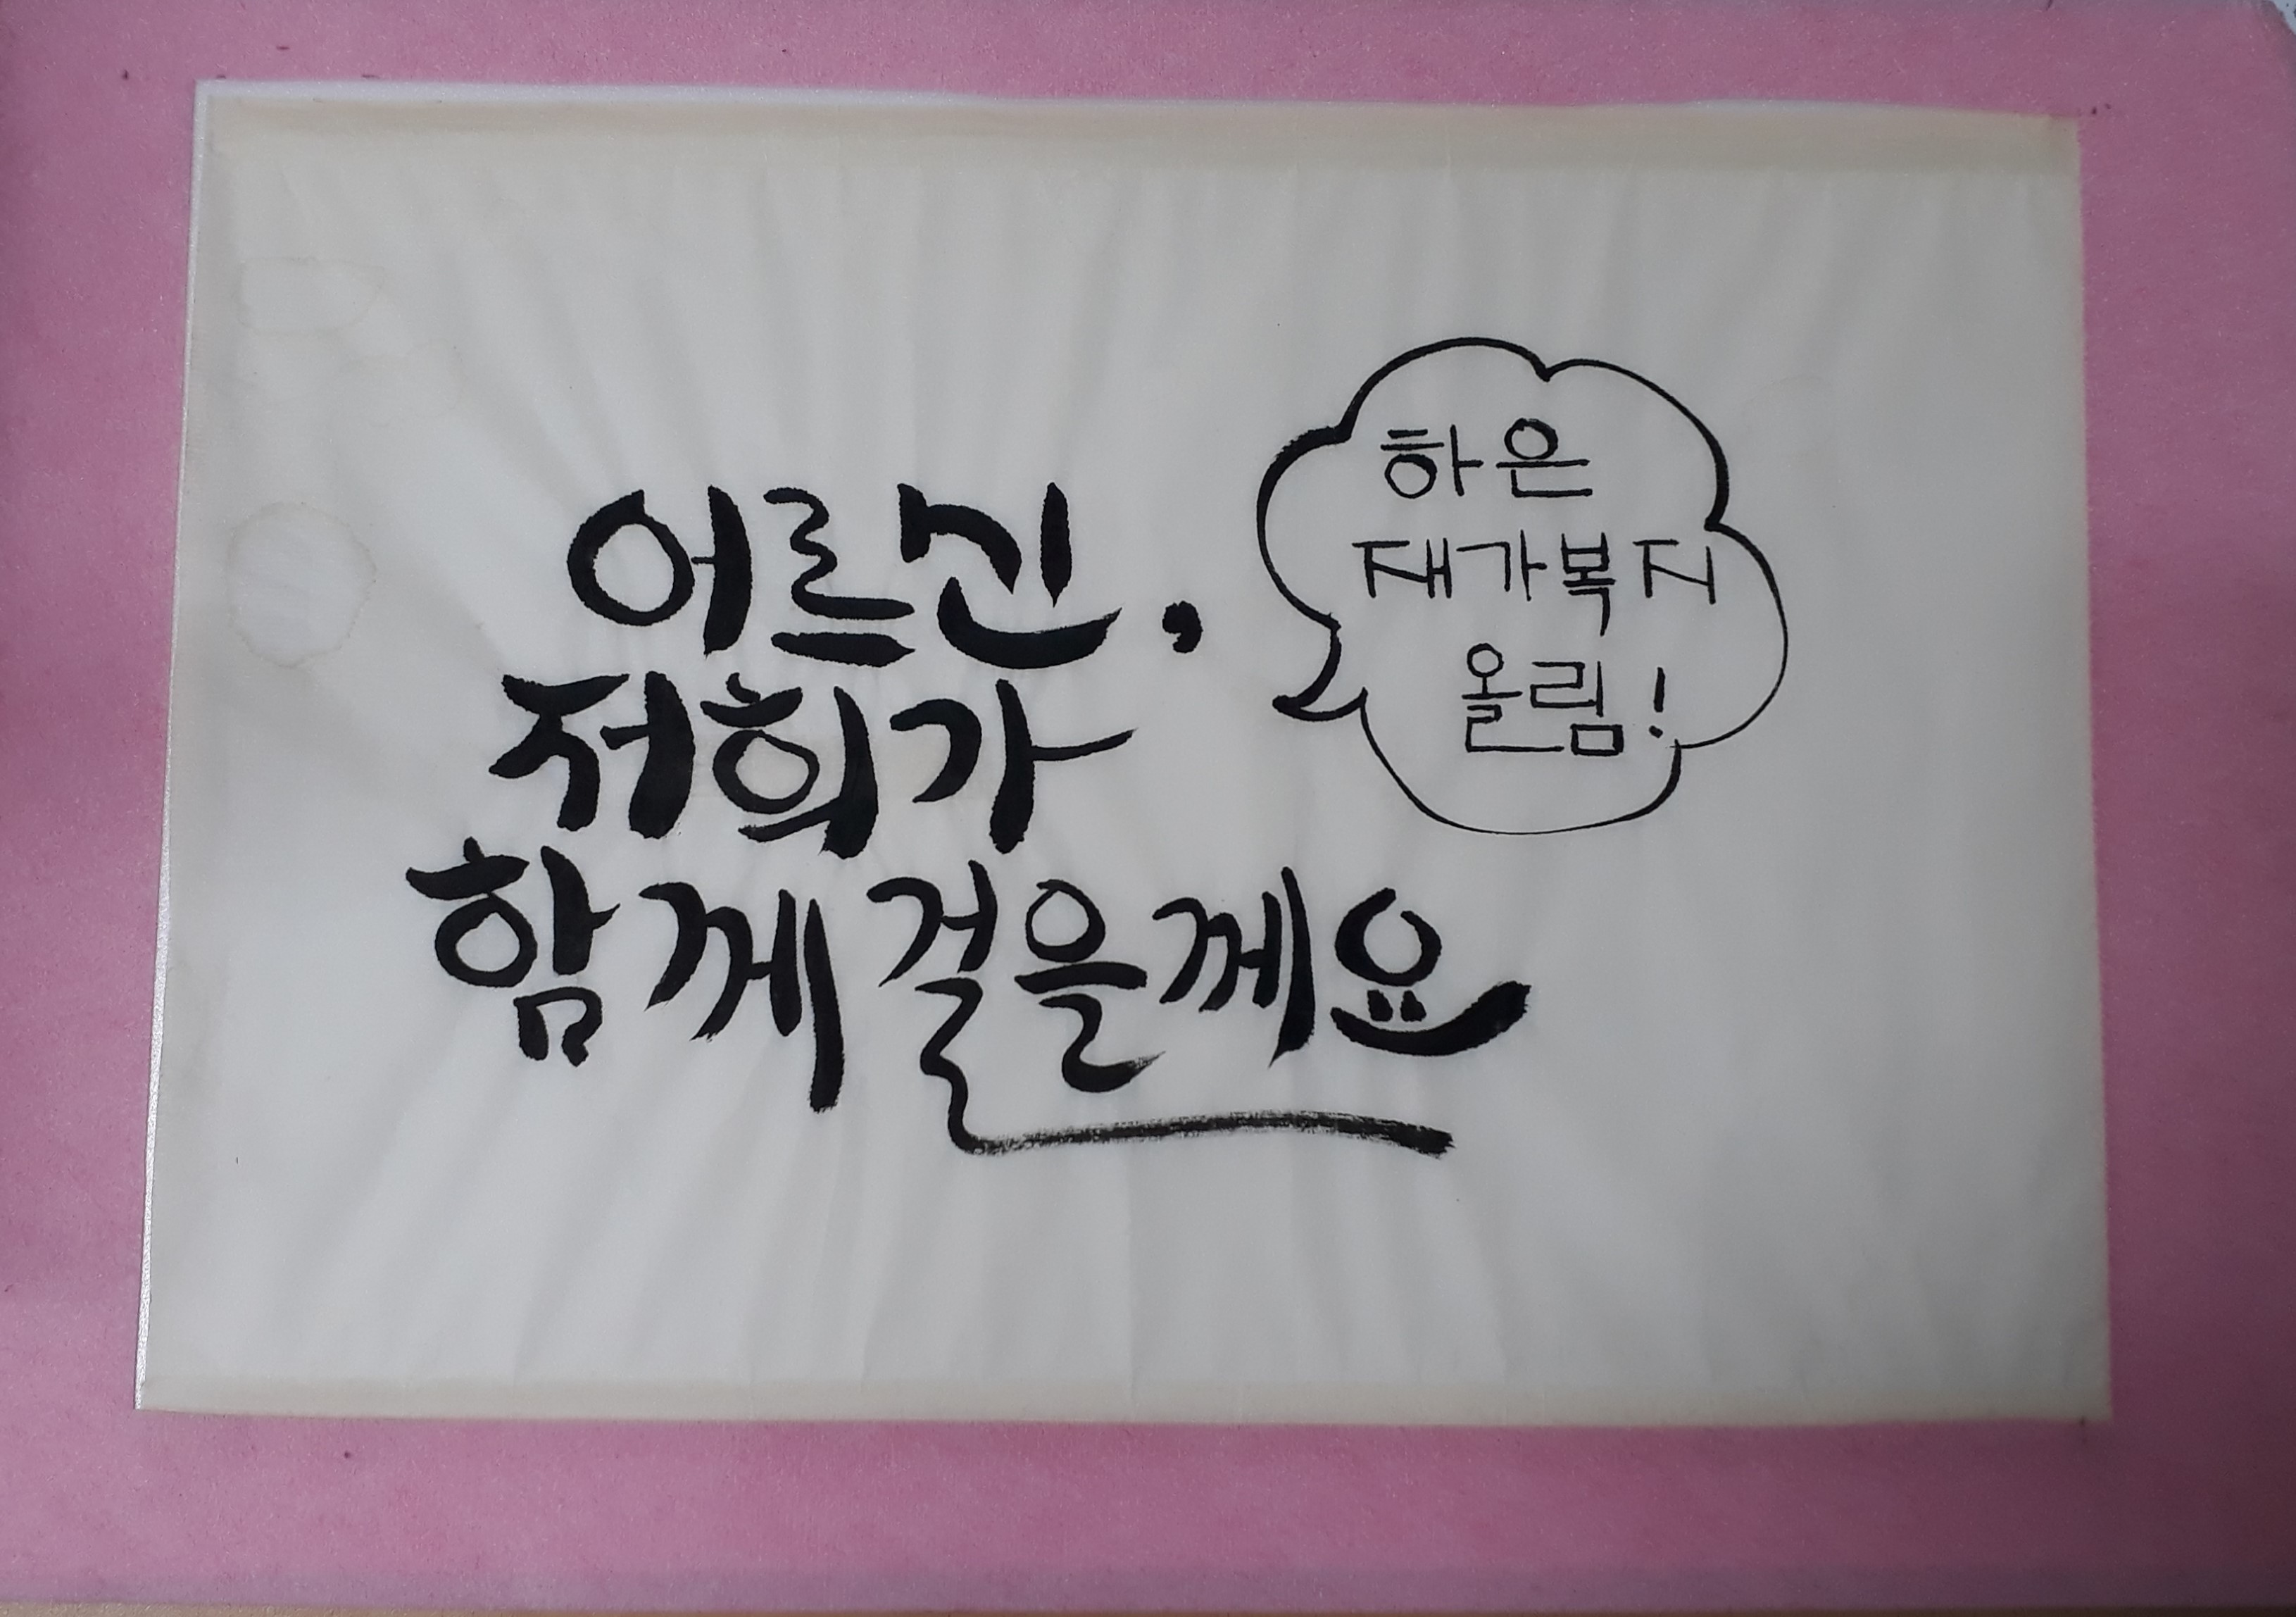 어르신,
저희가
함께 걸을께요
하은
재가복지
올림!